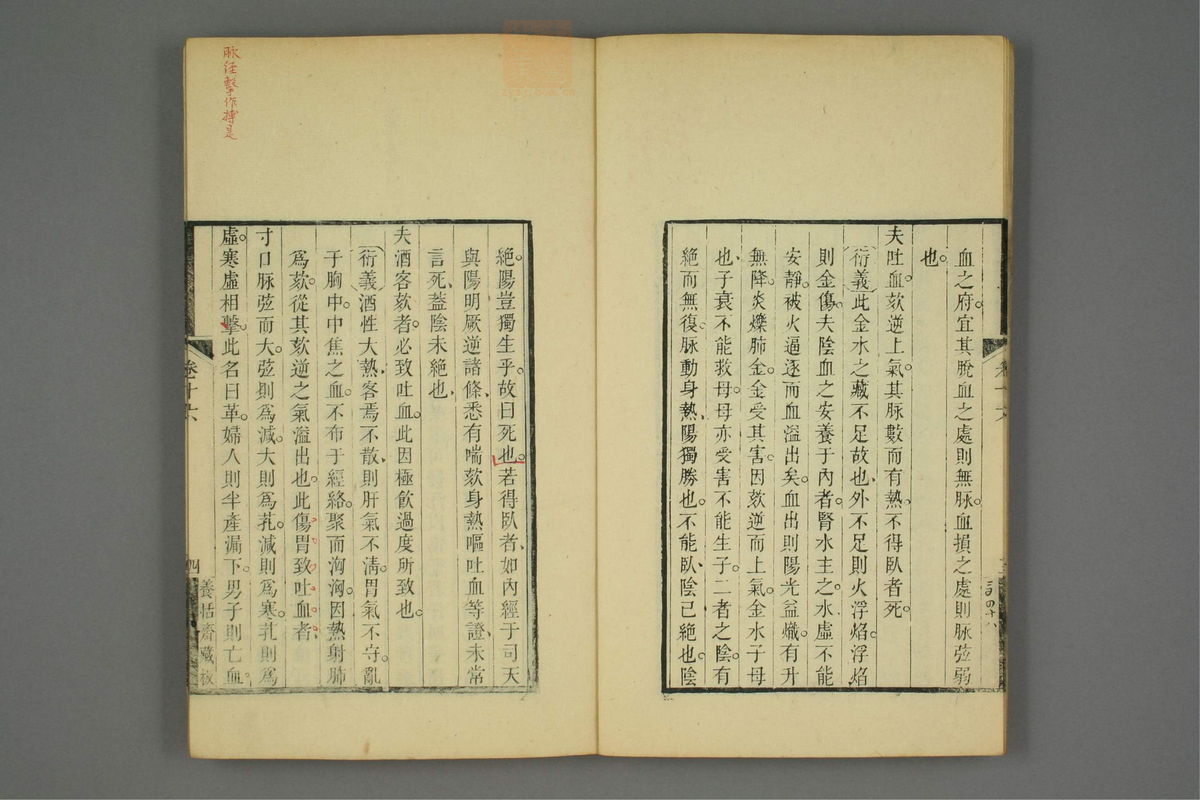 血之府。宜其脫血之處則無脉。血損之處則脉弦弱
也。
夫吐血。欬逆上氣。其脉數而有熱、不得臥者死。
衍義此金水之藏不足故也、外不足則火浮焰。浮焰
則金傷。夫陰血之安養于內者。腎水主之。水虛不能
安靜。被火逼逐而血溢出矣。血出則陽光益熾。有升
無降。炎爍肺金。金受其害。因欬逆而上氣。金水子母
也、子衰不能救母。母亦受害不能生子。二者之陰。有
絕而無復。脉動身熱、陽獨勝也。不能臥、陰已絕也。陰
絕。陽豈獨生乎。故曰死也。若得臥者、如內經于司天
與陽明厥逆諸條、悉有喘欬身熱嘔吐血等證、未常
言死、葢陰未絕也、
夫酒客欬者。必致吐血。此因極飲過度所致也。
衍義酒性大熱、客焉不散、則肝氣不清。胃氣不守。亂
于胸中。中焦之血。不布于經絡。聚而洶洶。因熱射肺
爲欬。從其欬逆之氣溢出也。此傷胃致吐血者、
寸口脉弦而大。弦則爲減。大則爲芤。減則爲寒。芤則爲
虛。寒虛相擊。此名曰革。婦人則半產漏下。男子則亡血。
卷十六
四
養恬齋藏板
脉經擊作搏是